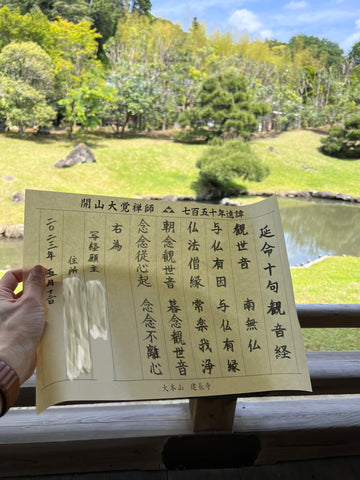 開山大覚禅師 七百五十年遠諱
延命十句観音経
観世音 南無仏
与仏有因 与仏有縁
仏法僧縁 常楽我浄
朝念観世音 暮念観世音
念念従心起 念念不離心
右為
写経願主
住所
二〇二三年 五月
大本山 建長寺